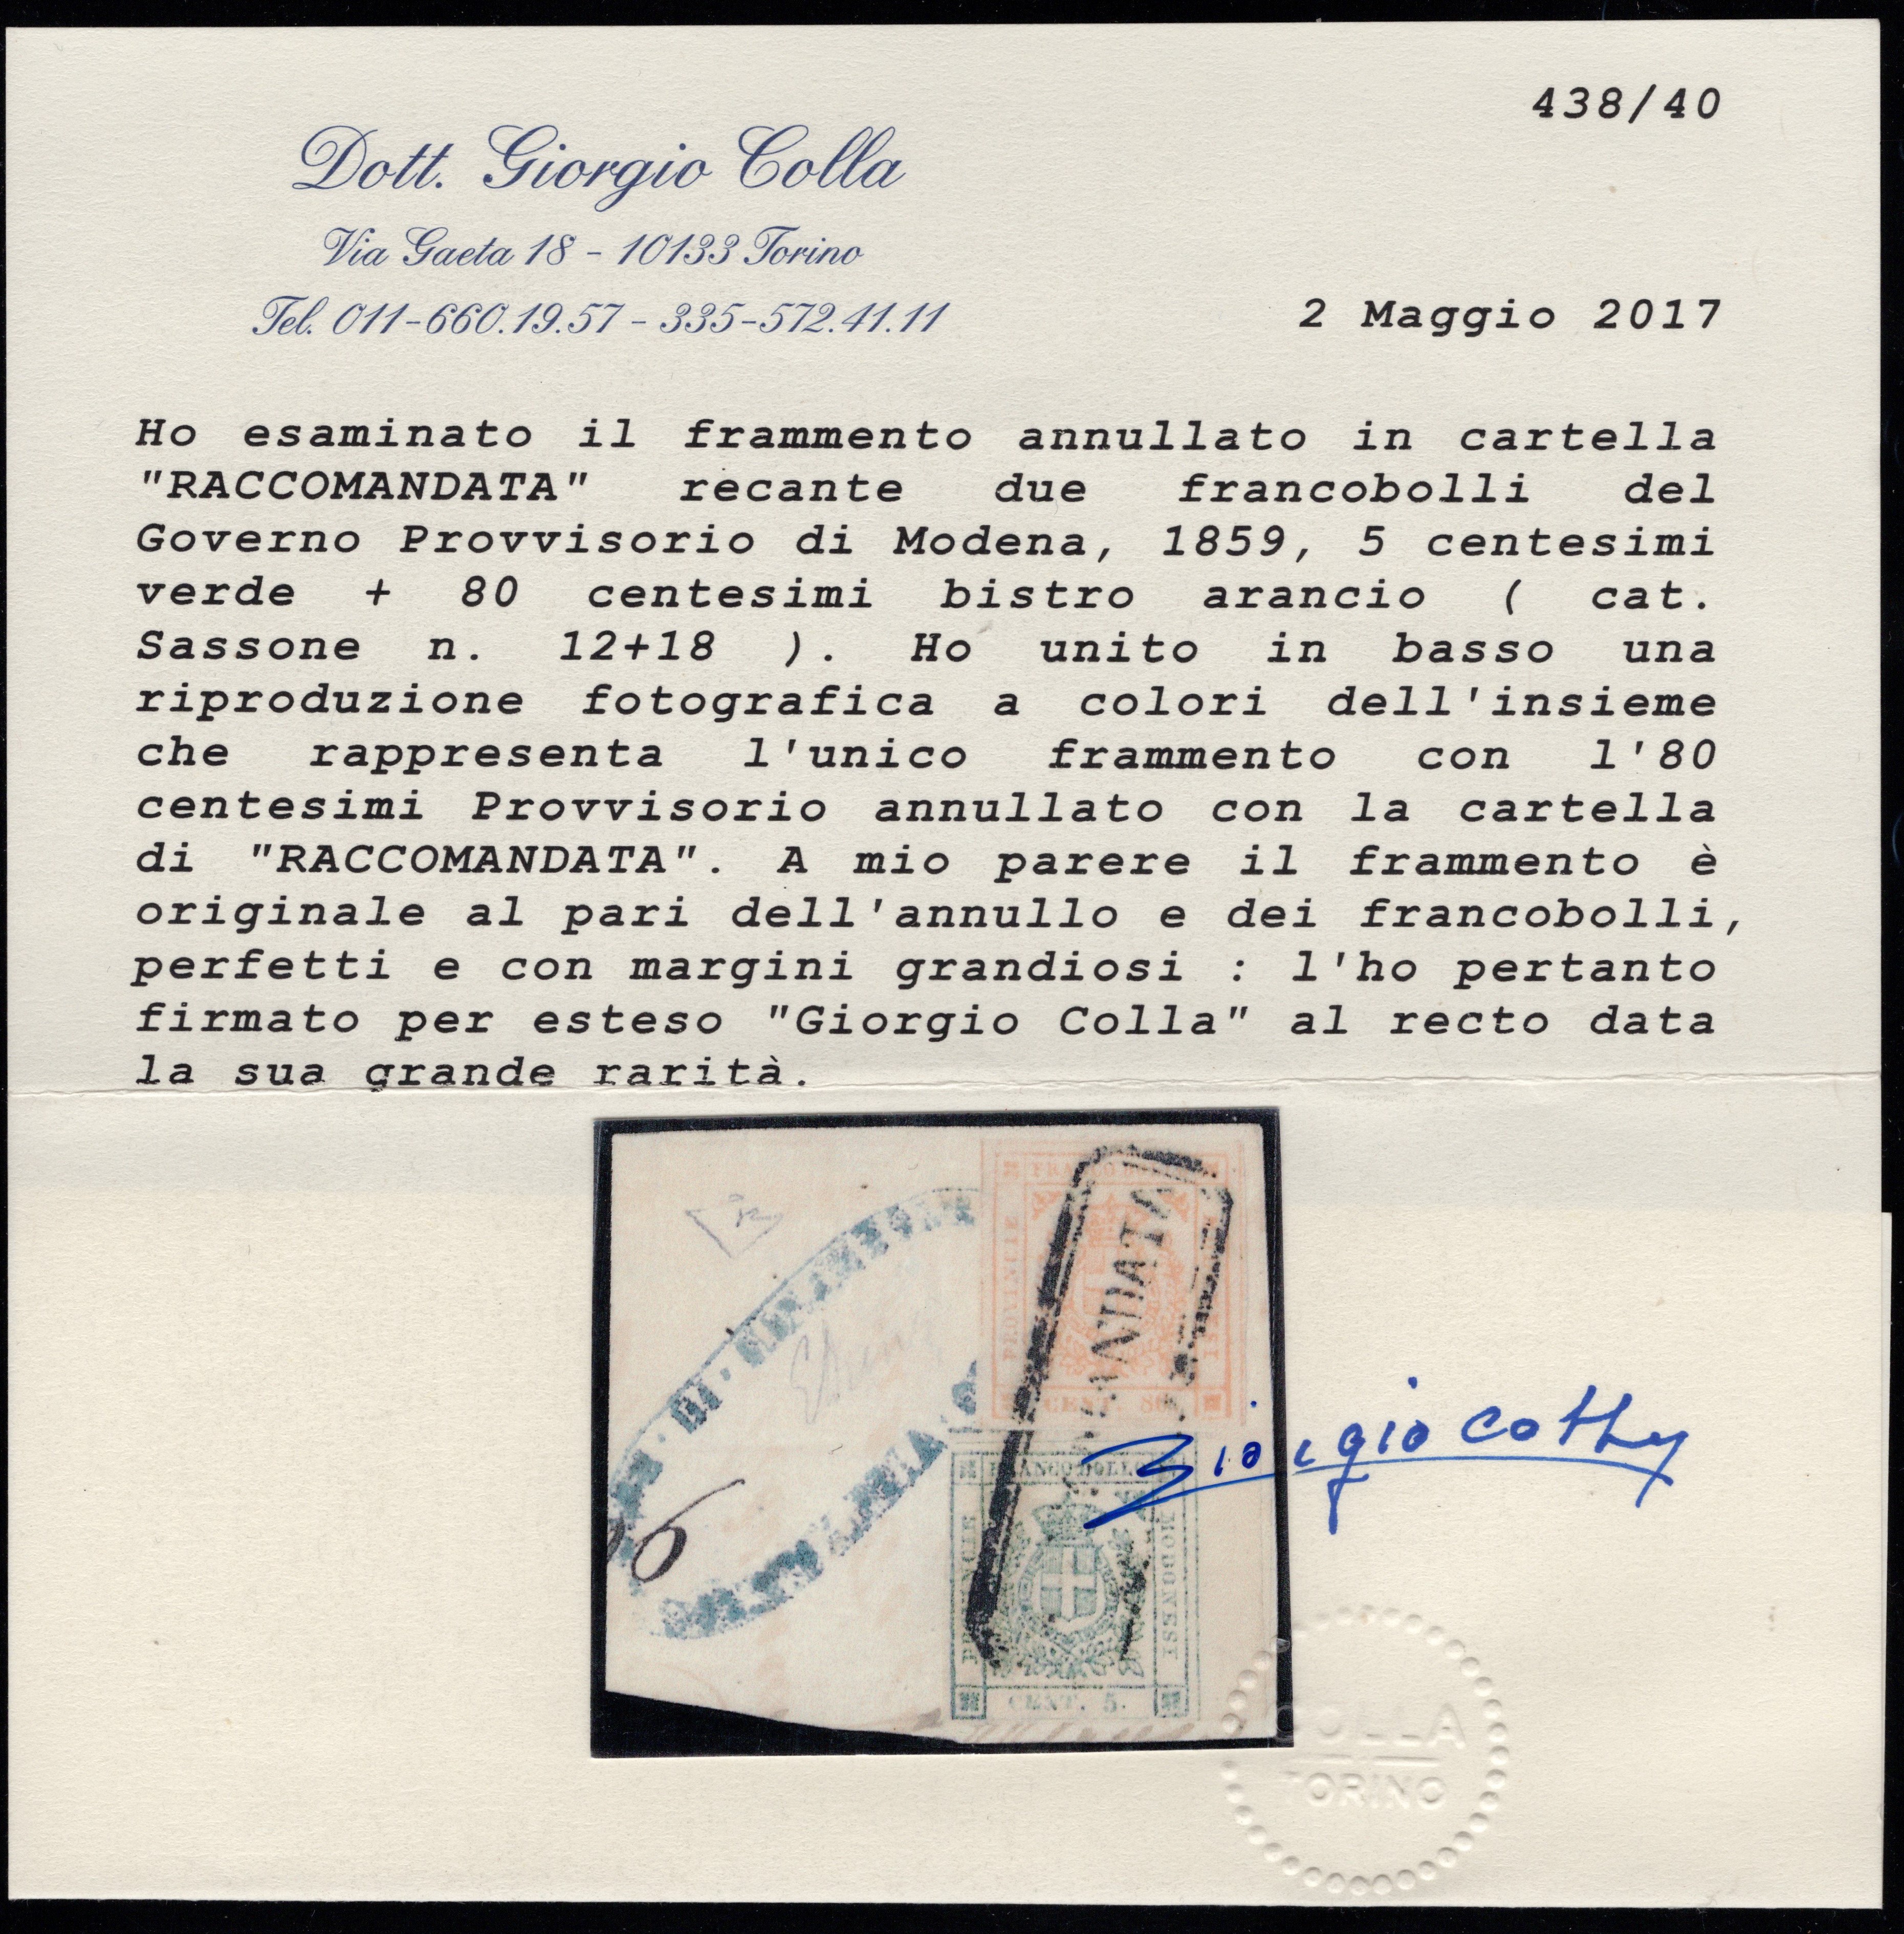 438/40
Dott. Giorgio Colla
Via Gaeta 18 - 10133 Torino
Tel. 011-660.19.57 - 335-572.41.11
2 Maggio 2017
Ho esaminato il frammento annullato in cartella
"RACCOMANDATA" recante due francobolli del
Governo Provvisorio di Modena, 1859, 5 centesimi
verde + 80 centesimi bistro arancio ( cat.
Sassone n. 12+18 ). Ho unito in basso una
riproduzione fotografica a colori dell'insieme
che rappresenta l'unico frammento con l'80
centesimi Provvisorio annullato con la cartella
di "RACCOMANDATA". A mio parere il frammento è
originale al pari dell'annullo e dei francobolli,
perfetti e con margini grandiosi : l'ho pertanto
firmato per esteso "Giorgio Colla" al recto data
la sua grande rarità.
PROVINCIE
CENT. 80
ANDATA
DI
6
MODONESI
CENT. 5.
Giorgio Colla
COLLA
TORINO